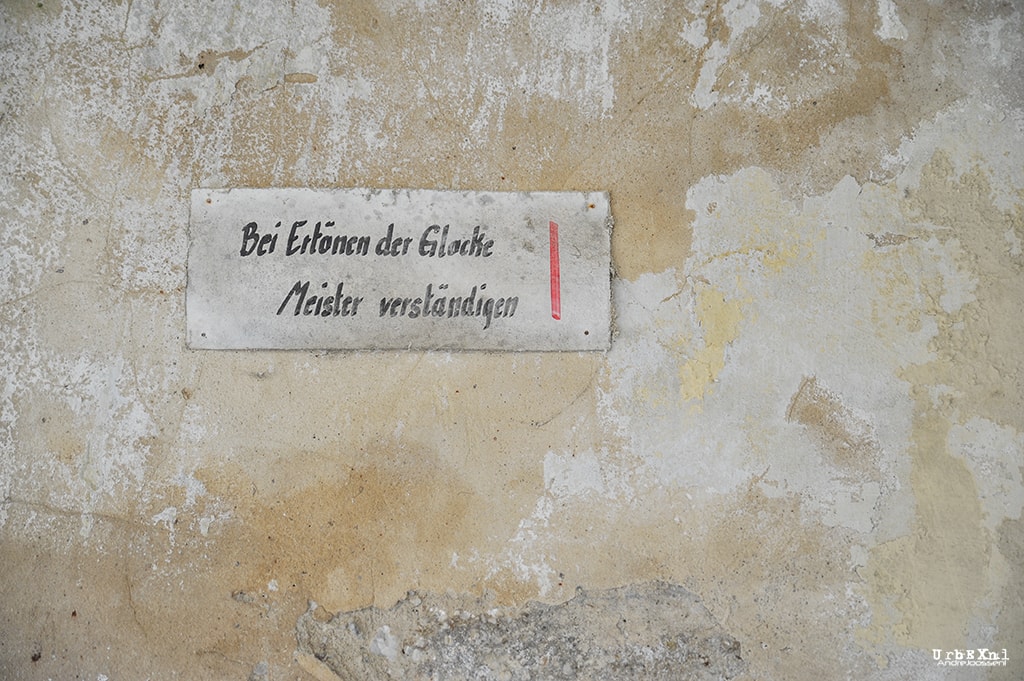 Bei Ertönen der Glocke
Meister verständigen
UrbEXnl
AndreJoosse.nl